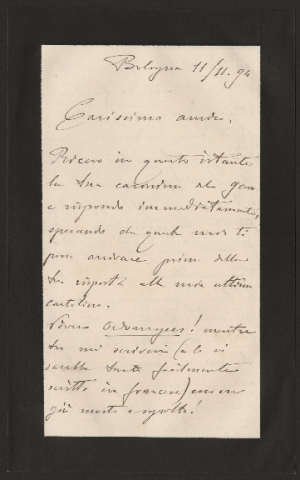 Bologna 11/11. 94
Carissimo amico,
Ricevo in questo istante
la tua carissima
e rispondo immediatamente,
sperando che
andare prima della
tua risposta alla mia ultima
cartolina.
Povero ! mentre
tu mi scrivevi (e lo si
sarebbe facilmente
scritto in francese)
già morto e sepolto!